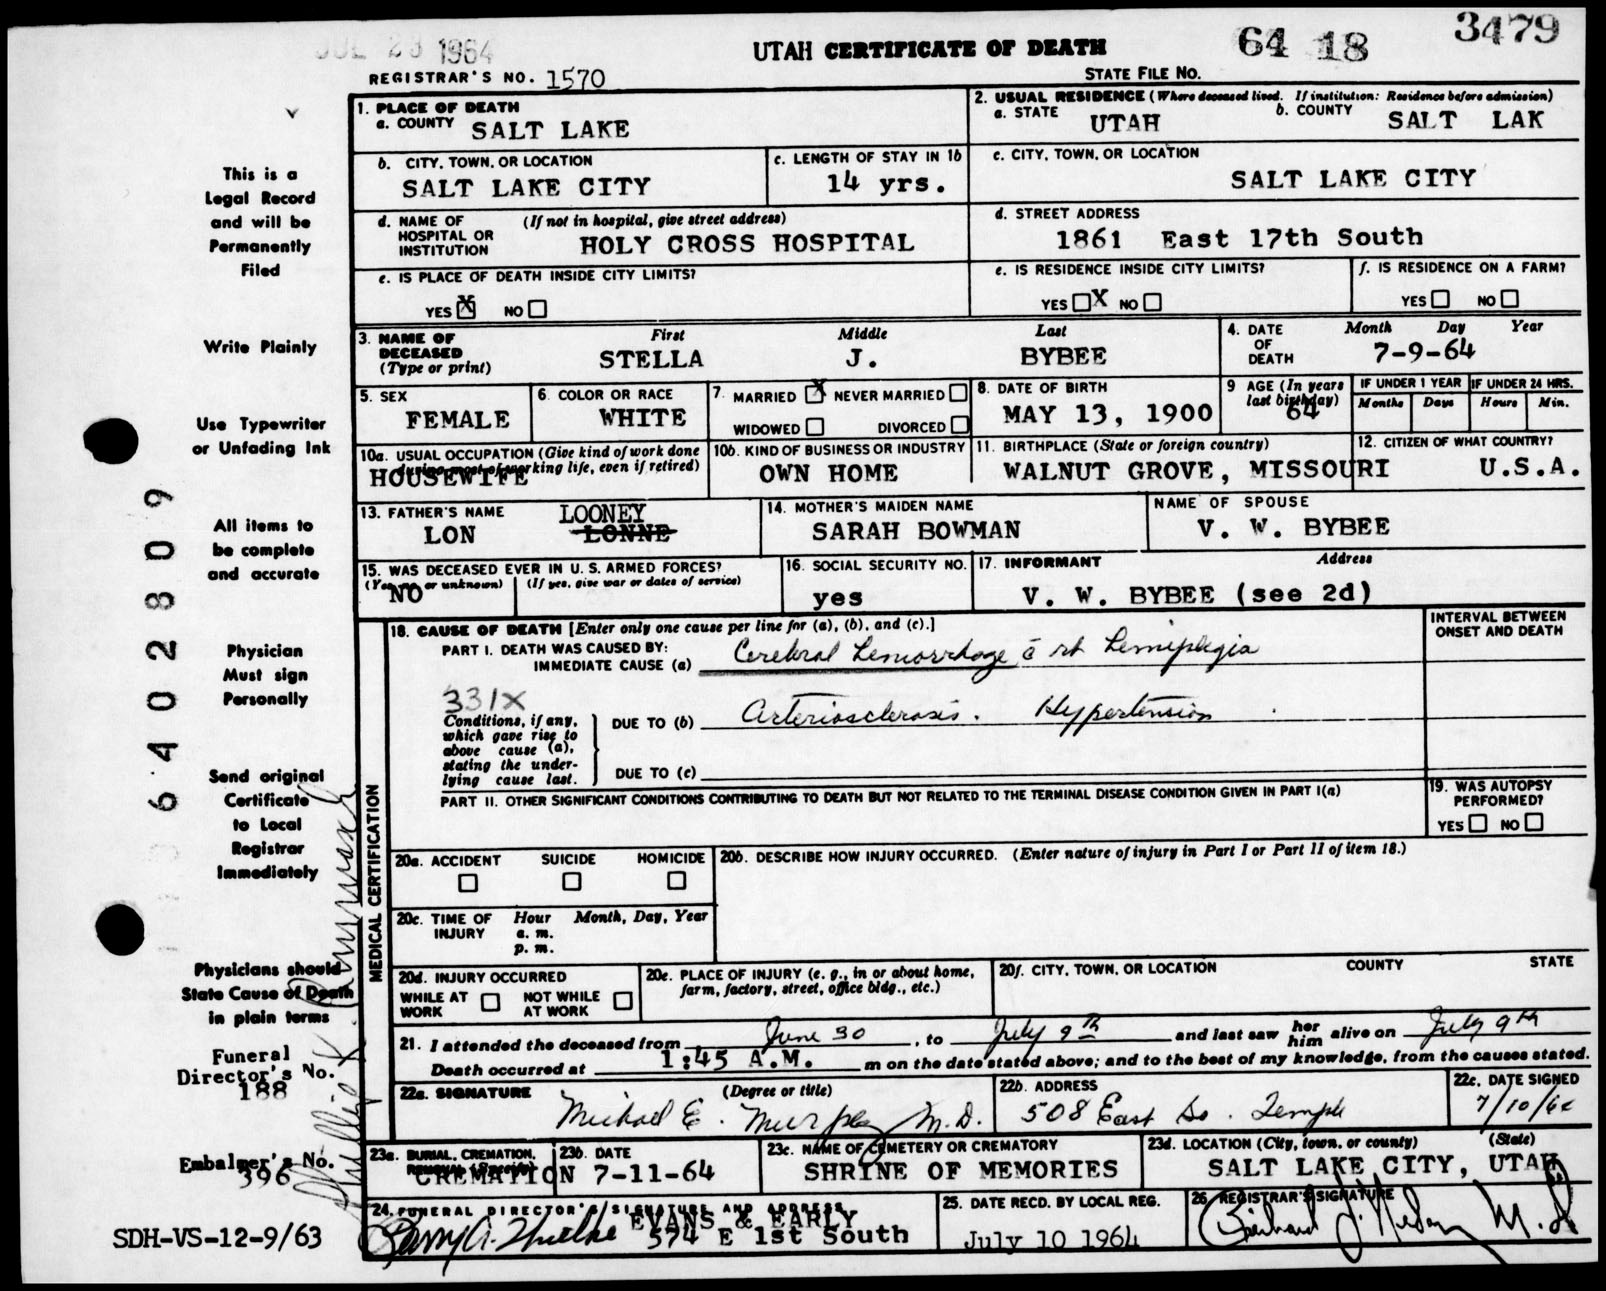 JUL 23 1964
UTAH CERTIFICATE OF DEATH
64 18 3479
REGISTRAR'S NO. 1570
STATE FILE NO.
This is a
Legal Record
and will be
Permanently
Filed
Write Plainly
Use Typewriter
or Unfading Ink
All items to
be complete
and accurate
Physician
Must sign
Personally
Send original
Certificate
to Local
Registrar
Immediately
Physicians should
State Cause of Death
in plain terms
Funeral
Director's No.
188
Embalmer's No.
396
SDH-VS-12-9/63
6402809
1. PLACE OF DEATH
a. COUNTY SALT LAKE
2. USUAL RESIDENCE (Where deceased lived. If institution: Residence before admission)
a. STATE UTAH b. COUNTY SALT LAK
b. CITY, TOWN, OR LOCATION
SALT LAKE CITY
c. LENGTH OF STAY IN 1b
14 yrs.
c. CITY, TOWN, OR LOCATION
SALT LAKE CITY
d. NAME OF HOSPITAL OR INSTITUTION (If not in hospital, give street address)
HOLY CROSS HOSPITAL
d. STREET ADDRESS
1861 East 17th South
e. IS PLACE OF DEATH INSIDE CITY LIMITS?
YES X NO
e. IS RESIDENCE INSIDE CITY LIMITS?
YES X NO
f. IS RESIDENCE ON A FARM?
YES NO
3. NAME OF DECEASED (Type or print)
First Middle Last
STELLA J. BYBEE
4. DATE OF DEATH Month Day Year
7-9-64
5. SEX
FEMALE
6. COLOR OR RACE
WHITE
7. MARRIED X NEVER MARRIED
WIDOWED DIVORCED
8. DATE OF BIRTH
MAY 13, 1900
9 AGE (In years last birthday)
64
IF UNDER 1 YEAR IF UNDER 24 HRS.
Months Days Hours Min.
10a. USUAL OCCUPATION (Give kind of work done during most of working life, even if retired)
HOUSEWIFE
10b. KIND OF BUSINESS OR INDUSTRY
OWN HOME
11. BIRTHPLACE (State or foreign country)
WALNUT GROVE, MISSOURI
12. CITIZEN OF WHAT COUNTRY?
U.S.A.
13. FATHER'S NAME
LOONEY
LON LONNE
14. MOTHER'S MAIDEN NAME
SARAH BOWMAN
NAME OF SPOUSE
V. W. BYBEE
15. WAS DECEASED EVER IN U. S. ARMED FORCES?
(Yes, no, or unknown) (If yes, give war or dates of service)
NO
16. SOCIAL SECURITY NO.
yes
17. INFORMANT Address
V. W. BYBEE (see 2d)
MEDICAL CERTIFICATION
18. CAUSE OF DEATH [Enter only one cause per line for (a), (b), and (c).]
INTERVAL BETWEEN ONSET AND DEATH
PART I. DEATH WAS CAUSED BY:
IMMEDIATE CAUSE (a) Cerebral hemorrhage c̄ rt hemiplegia
331X
Conditions, if any,
which gave rise to
above cause (a),
stating the under-
lying cause last.
DUE TO (b) Arteriosclerosis. Hypertension
DUE TO (c)
PART II. OTHER SIGNIFICANT CONDITIONS CONTRIBUTING TO DEATH BUT NOT RELATED TO THE TERMINAL DISEASE CONDITION GIVEN IN PART I(a)
19. WAS AUTOPSY PERFORMED?
YES NO
20a. ACCIDENT SUICIDE HOMICIDE
20b. DESCRIBE HOW INJURY OCCURRED. (Enter nature of injury in Part I or Part II of item 18.)
20c. TIME OF INJURY Hour Month, Day, Year
a. m.
p. m.
20d. INJURY OCCURRED
WHILE AT WORK NOT WHILE AT WORK
20e. PLACE OF INJURY (e. g., in or about home, farm, factory, street, office bldg., etc.)
20f. CITY, TOWN, OR LOCATION COUNTY STATE
21. I attended the deceased from June 30, to July 9th and last saw her him alive on July 9th
Death occurred at 1:45 A.M. m on the date stated above; and to the best of my knowledge, from the causes stated.
22a. SIGNATURE (Degree or title)
Michael E. Murphy M.D.
22b. ADDRESS
508 East So. Temple
22c. DATE SIGNED
7/10/64
23a. BURIAL, CREMATION, REMOVAL (Specify)
CREMATION
23b. DATE
7-11-64
23c. NAME OF CEMETERY OR CREMATORY
SHRINE OF MEMORIES
23d. LOCATION (City, town, or county) (State)
SALT LAKE CITY, UTAH
24. FUNERAL DIRECTOR'S SIGNATURE AND ADDRESS
EVANS & EARLY
574 E 1st South
25. DATE RECD. BY LOCAL REG.
July 10 1964
26 REGISTRAR'S SIGNATURE
M.D